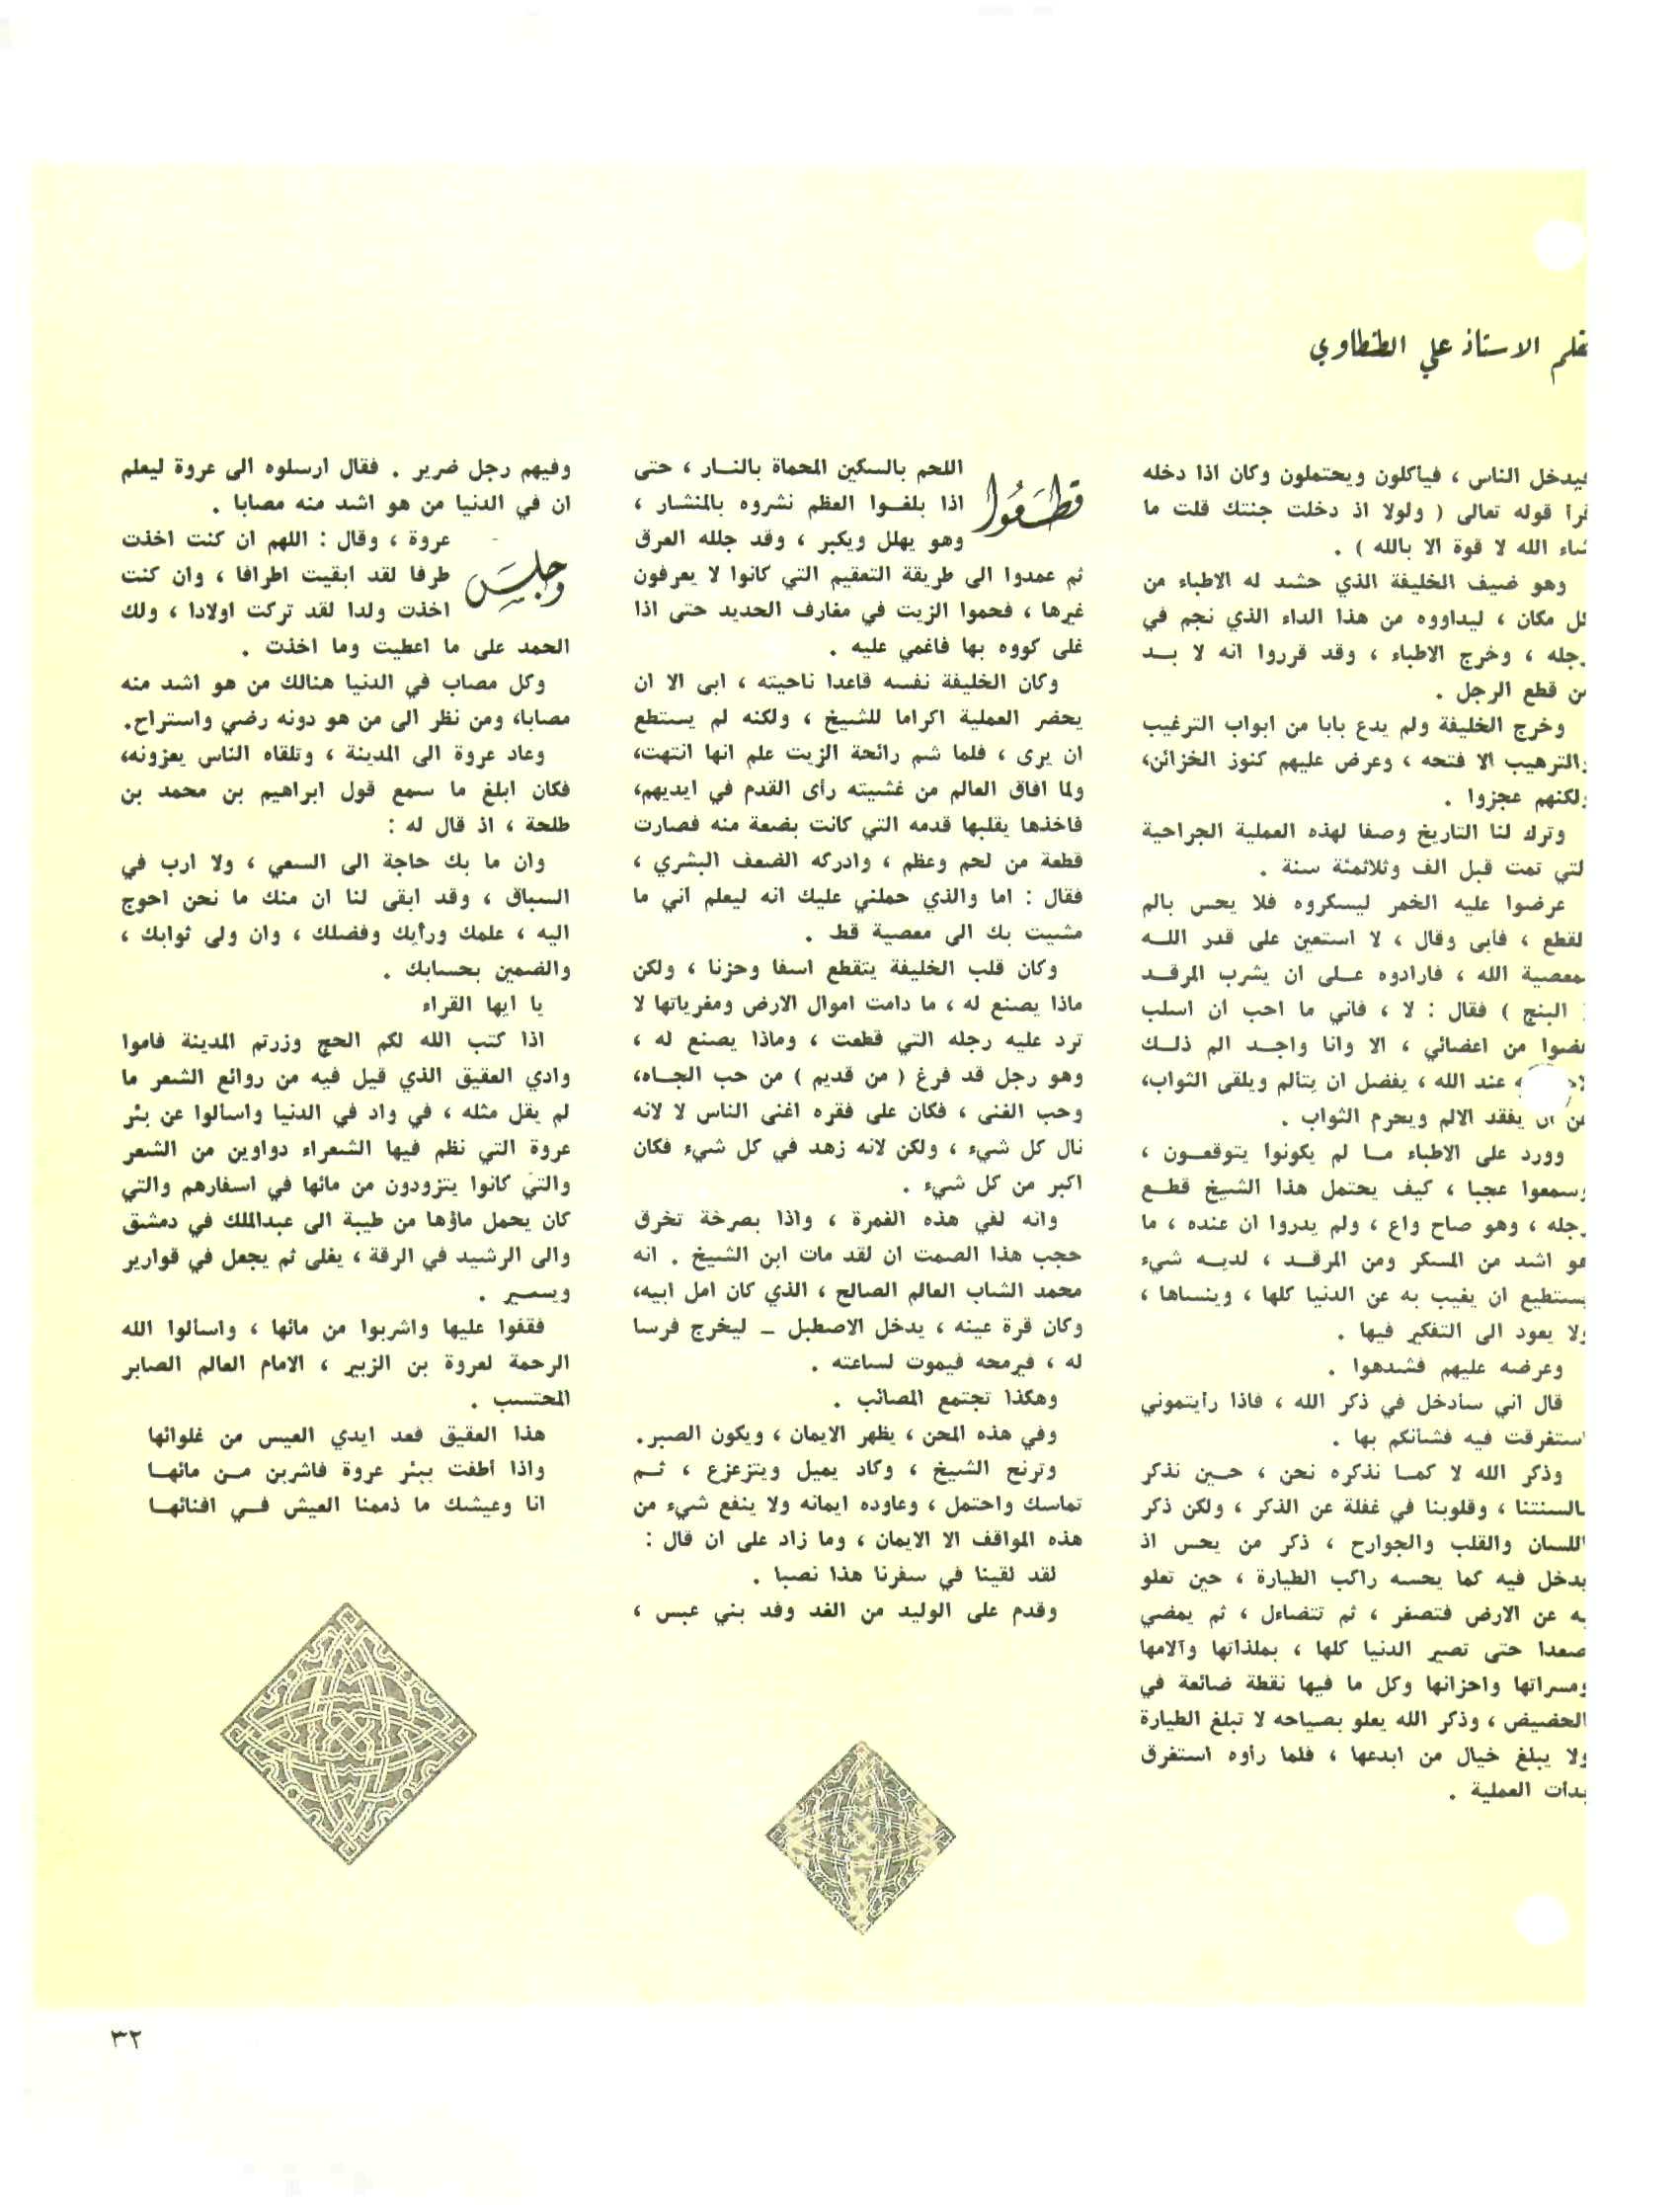 بقلم الاستاذ علي الطنطاوي
فيدخل الناس ، فيأكلون ويحتملون وكان اذا دخله
قرأ قوله تعالى ( ولولا اذ دخلت جنتك قلت ما
شاء الله لا قوة الا بالله ) .
وهو ضيف الخليفة الذي حشد له الاطباء من
كل مكان ، ليداووه من هذا الداء الذي نجم في
رجله ، وخرج الاطباء ، وقد قرروا انه لا بــد
من قطع الرجل .
وخرج الخليفة ولم يدع بابا من ابواب الترغيب
والترهيب الا فتحه ، وعرض عليهم كنوز الخزائن،
ولكنهم عجزوا .
وترك لنا التاريخ وصفا لهذه العملية الجراحية
التي تمت قبل الف وثلاثمئة سنة .
عرضوا عليه الخمر ليسكروه فلا يحس بالم
القطع ، فأبى وقال ، لا استعين على قدر اللــه
بمعصية الله ، فارادوه عــلى ان يشرب المرقــد
( البنج ) فقال : لا ، فاني ما احب ان اسلب
عضوا من اعضائي ، الا وانا واجــد الم ذلــك
عند الله ، يفضل ان يتالم ويلقى الثواب،
من ان يفقد الالم ويحرم الثواب .
وورد على الاطباء مــا لم يكونوا يتوقعــون ،
وسمعوا عجبا ، كيف يحتمل هذا الشيخ قطــع
رجله ، وهو صاح واع ، ولم يدروا ان عنده ، ما
هو اشد من المسكر ومن المرقــد ، لديــه شيء
يستطيع ان يغيب به عن الدنيا كلها ، وينساها ،
ولا يعود الى التفكير فيها .
وعرضه عليهم فشدهوا .
قال اني سأدخل في ذكر الله ، فاذا رأيتموني
استغرقت فيه فشانكم بها .
وذكر الله لا كمــا نذكره نحن ، حــين نذكر
بالسنتنا ، وقلوبنا في غفلة عن الذكر ، ولكن ذكر
اللسان والقلب والجوارح ، ذكر من يحس اذ
يدخل فيه كما يحسه راكب الطيارة ، حين تعلو
به عن الارض فتصغر ، ثم تتضاءل ، ثم يمضي
صعدا حتى تصير الدنيا كلها ، بملذاتها وآلامها
ومسراتها واحزانها وكل ما فيها نقطة ضائعة في
الحضيض ، وذكر الله يعلو بصياحه لا تبلغ الطيارة
ولا يبلغ خيال من ابدعها ، فلما رأوه استغرق
بدأت العملية .
قطعوا اللحم بالسكين المحماة بالنــار ، حتى
اذا بلغــوا العظم نشروه بالمنشار ،
وهو يهلل ويكبر ، وقد جلله العرق
ثم عمدوا الى طريقة التعقيم التي كانوا لا يعرفون
غيرها ، فحموا الزيت في مغارف الحديد حتى اذا
غلى كووه بها فاغمي عليه .
وكان الخليفة نفسه قاعدا ناحيته ، ابى الا ان
يحضر العملية اكراما للشيخ ، ولكنه لم يستطع
ان يرى ، فلما شم رائحة الزيت علم انها انتهت،
ولما افاق العالم من غشيته رأى القدم في ايديهم،
فاخذها يقلبها قدمه التي كانت بضعة منه فصارت
قطعة من لحم وعظم ، وادركه الضعف البشري ،
فقال : اما والذي حملني عليك انه ليعلم اني ما
مشيت بك الى معصية قط .
وكان قلب الخليفة يتقطع اسفا وحزنا ، ولكن
ماذا يصنع له ، ما دامت اموال الارض ومغرياتها لا
ترد عليه رجله التي قطعت ، وماذا يصنع له ،
وهو رجل قد فرغ ( من قديم ) من حب الجــاه،
وحب الغنى ، فكان على فقره اغنى الناس لا لانه
نال كل شيء ، ولكن لانه زهد في كل شيء فكان
اكبر من كل شيء .
وانه لفي هذه الغمرة ، واذا بصرخة تخرق
حجب هذا الصمت ان لقد مات ابن الشيخ . انه
محمد الشاب العالم الصالح ، الذي كان امل ابيه،
وكان قرة عينه ، يدخل الاصطبل ــ ليخرج فرسا
له ، فيرمحه فيموت لساعته .
وهكذا تجتمع المصائب .
وفي هذه المحن ، يظهر الايمان ، ويكون الصبر.
وترنح الشيخ ، وكاد يميل ويتزعزع ، ثــم
تماسك واحتمل ، وعاوده ايمانه ولا ينفع شيء من
هذه المواقف الا الايمان ، وما زاد على ان قال :
لقد لقينا في سفرنا هذا نصبا .
وقدم على الوليد من الغد وفد بني عبس ،
وفيهم رجل ضرير . فقال ارسلوه الى عروة ليعلم
ان في الدنيا من هو اشد منه مصابا .
وجلس عروة ، وقال : اللهم ان كنت اخذت
طرفا لقد ابقيت اطرافا ، وان كنت
اخذت ولدا لقد تركت اولادا ، ولك
الحمد على ما اعطيت وما اخذت .
وكل مصاب في الدنيا هنالك من هو اشد منه
مصابا، ومن نظر الى من هو دونه رضي واستراح.
وعاد عروة الى المدينة ، وتلقاه الناس يعزونه،
فكان ابلغ ما سمع قول ابراهيم بن محمد بن
طلحة ، اذ قال له :
وان ما بك حاجة الى السعي ، ولا ارب في
السباق ، وقد ابقى لنا ان منك ما نحن احوج
اليه ، علمك ورأيك وفضلك ، وان ولى ثوابك ،
والضمين بحسابك .
يا ايها القراء
اذا كتب الله لكم الحج وزرتم المدينة فاموا
وادي العقيق الذي قيل فيه من روائع الشعر ما
لم يقل مثله ، في واد في الدنيا واسالوا عن بئر
عروة التي نظم فيها الشعراء دواوين من الشعر
والتي كانوا يتزودون من مائها في اسفارهم والتي
كان يحمل ماؤها من طيبة الى عبدالملك في دمشق
والى الرشيد في الرقة ، يغلى ثم يجعل في قوارير
ويسير .
فقفوا عليها واشربوا من مائها ، واسالوا الله
الرحمة لعروة بن الزبير ، الامام العالم الصابر
المحتسب .
هذا العقيق فعد ايدي العيس من غلوائها
واذا اطفت ببئر عروة فاشربن مــن مائهــا
انا وعيشك ما ذممنا العيش فــي افنائهــا
٣٢